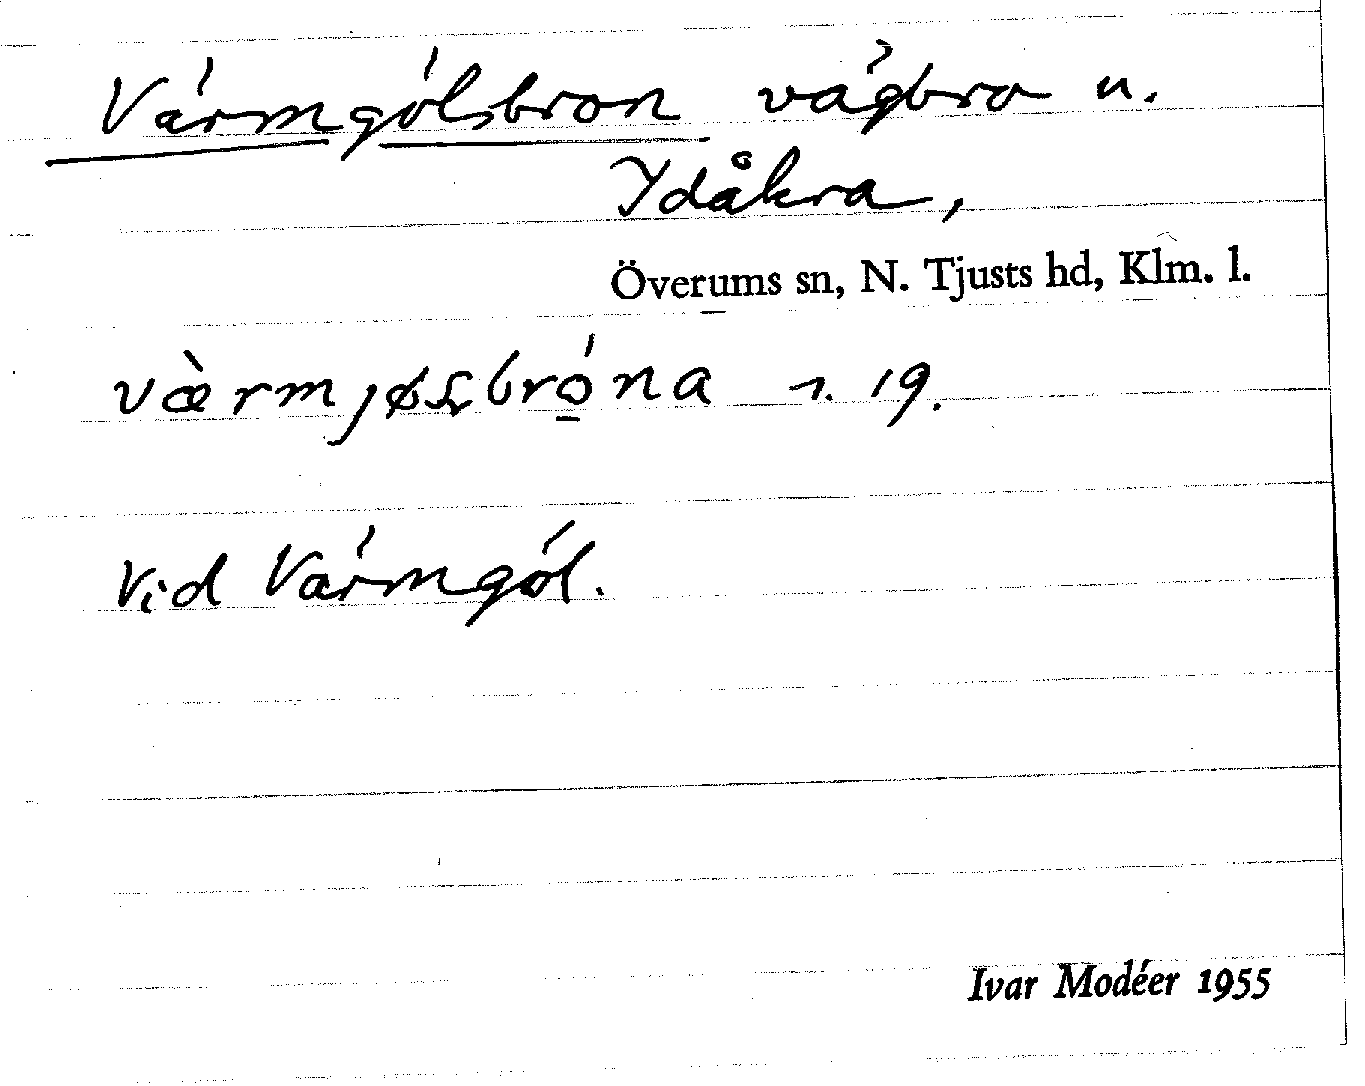 Värmgölsbron vägbro u.
Ydåkra,
Överums sn, N. Tjusts hd, Klm. l.
19.
Vid Värmgöl.
Ivar Modéer 1955